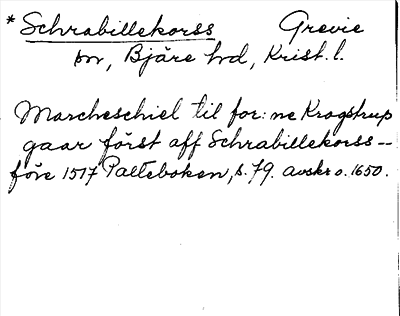 * Schrabillekorss Grevie
sn, Bjäre hd, Krist. l.
Marcheschiel til for: ne Krogstrup
gaar först aff Schrabillekorss --
före 1517 Palteboken, s. 79. avskr o. 1650.